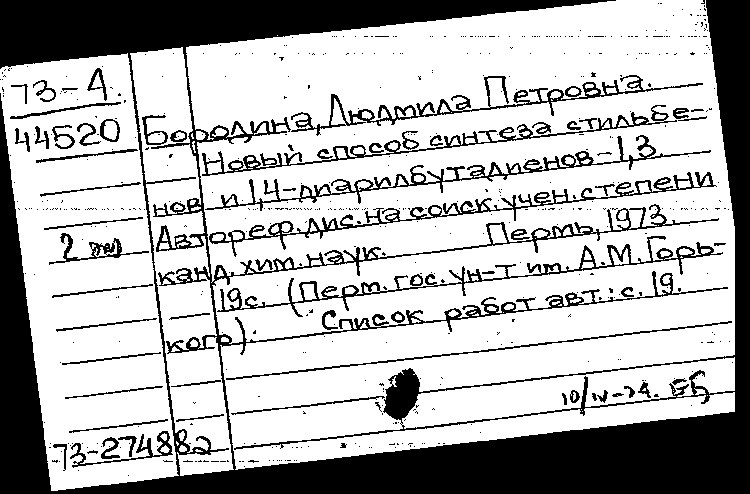 73-4.
44520
Бородина, Людмила Петровна.
Новый способ синтеза стильбе-
нов и 1,4-диарилбутадиенов-1,3.
Автореф. дис. на соиск. учен. степени
канд. хим. наук. Пермь, 1973.
19с. (Перм. гос. ун-т им. А.М. Горь-
кого). Список работ авт.: с. 19.
2
10/IV-74.
73-274882